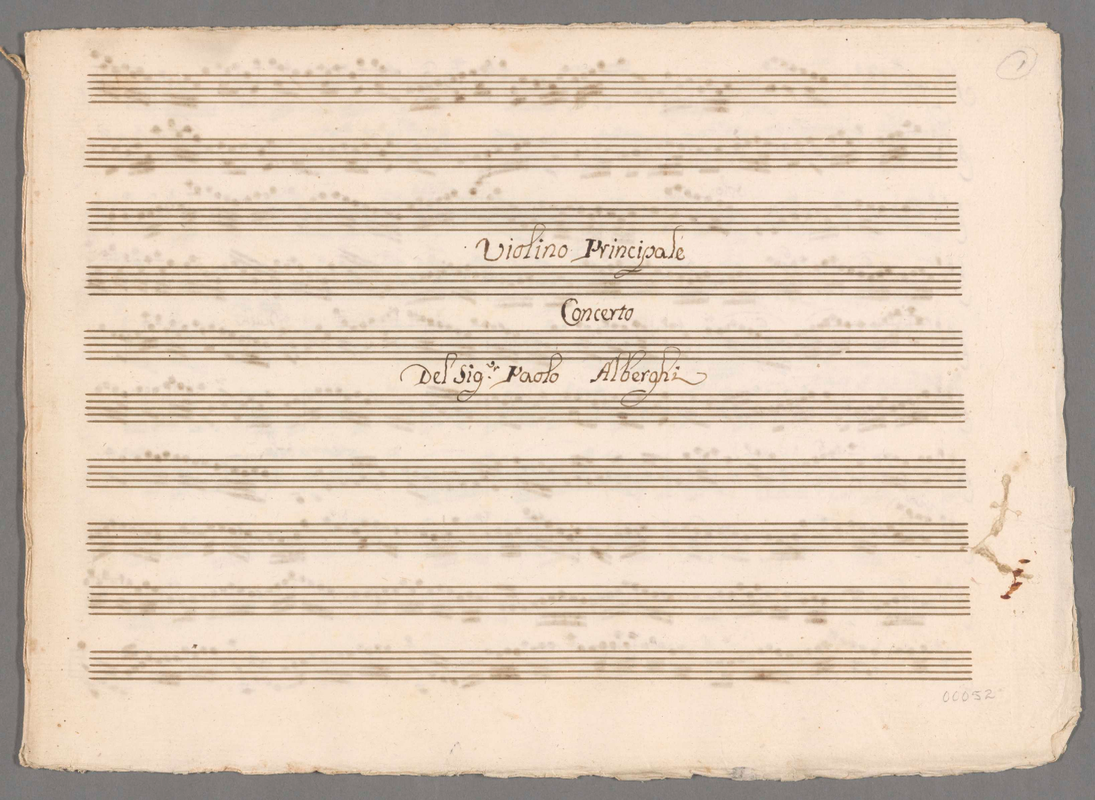 1
Violino Principale
Concerto
Del Sig.r Paolo Alberghi
00052